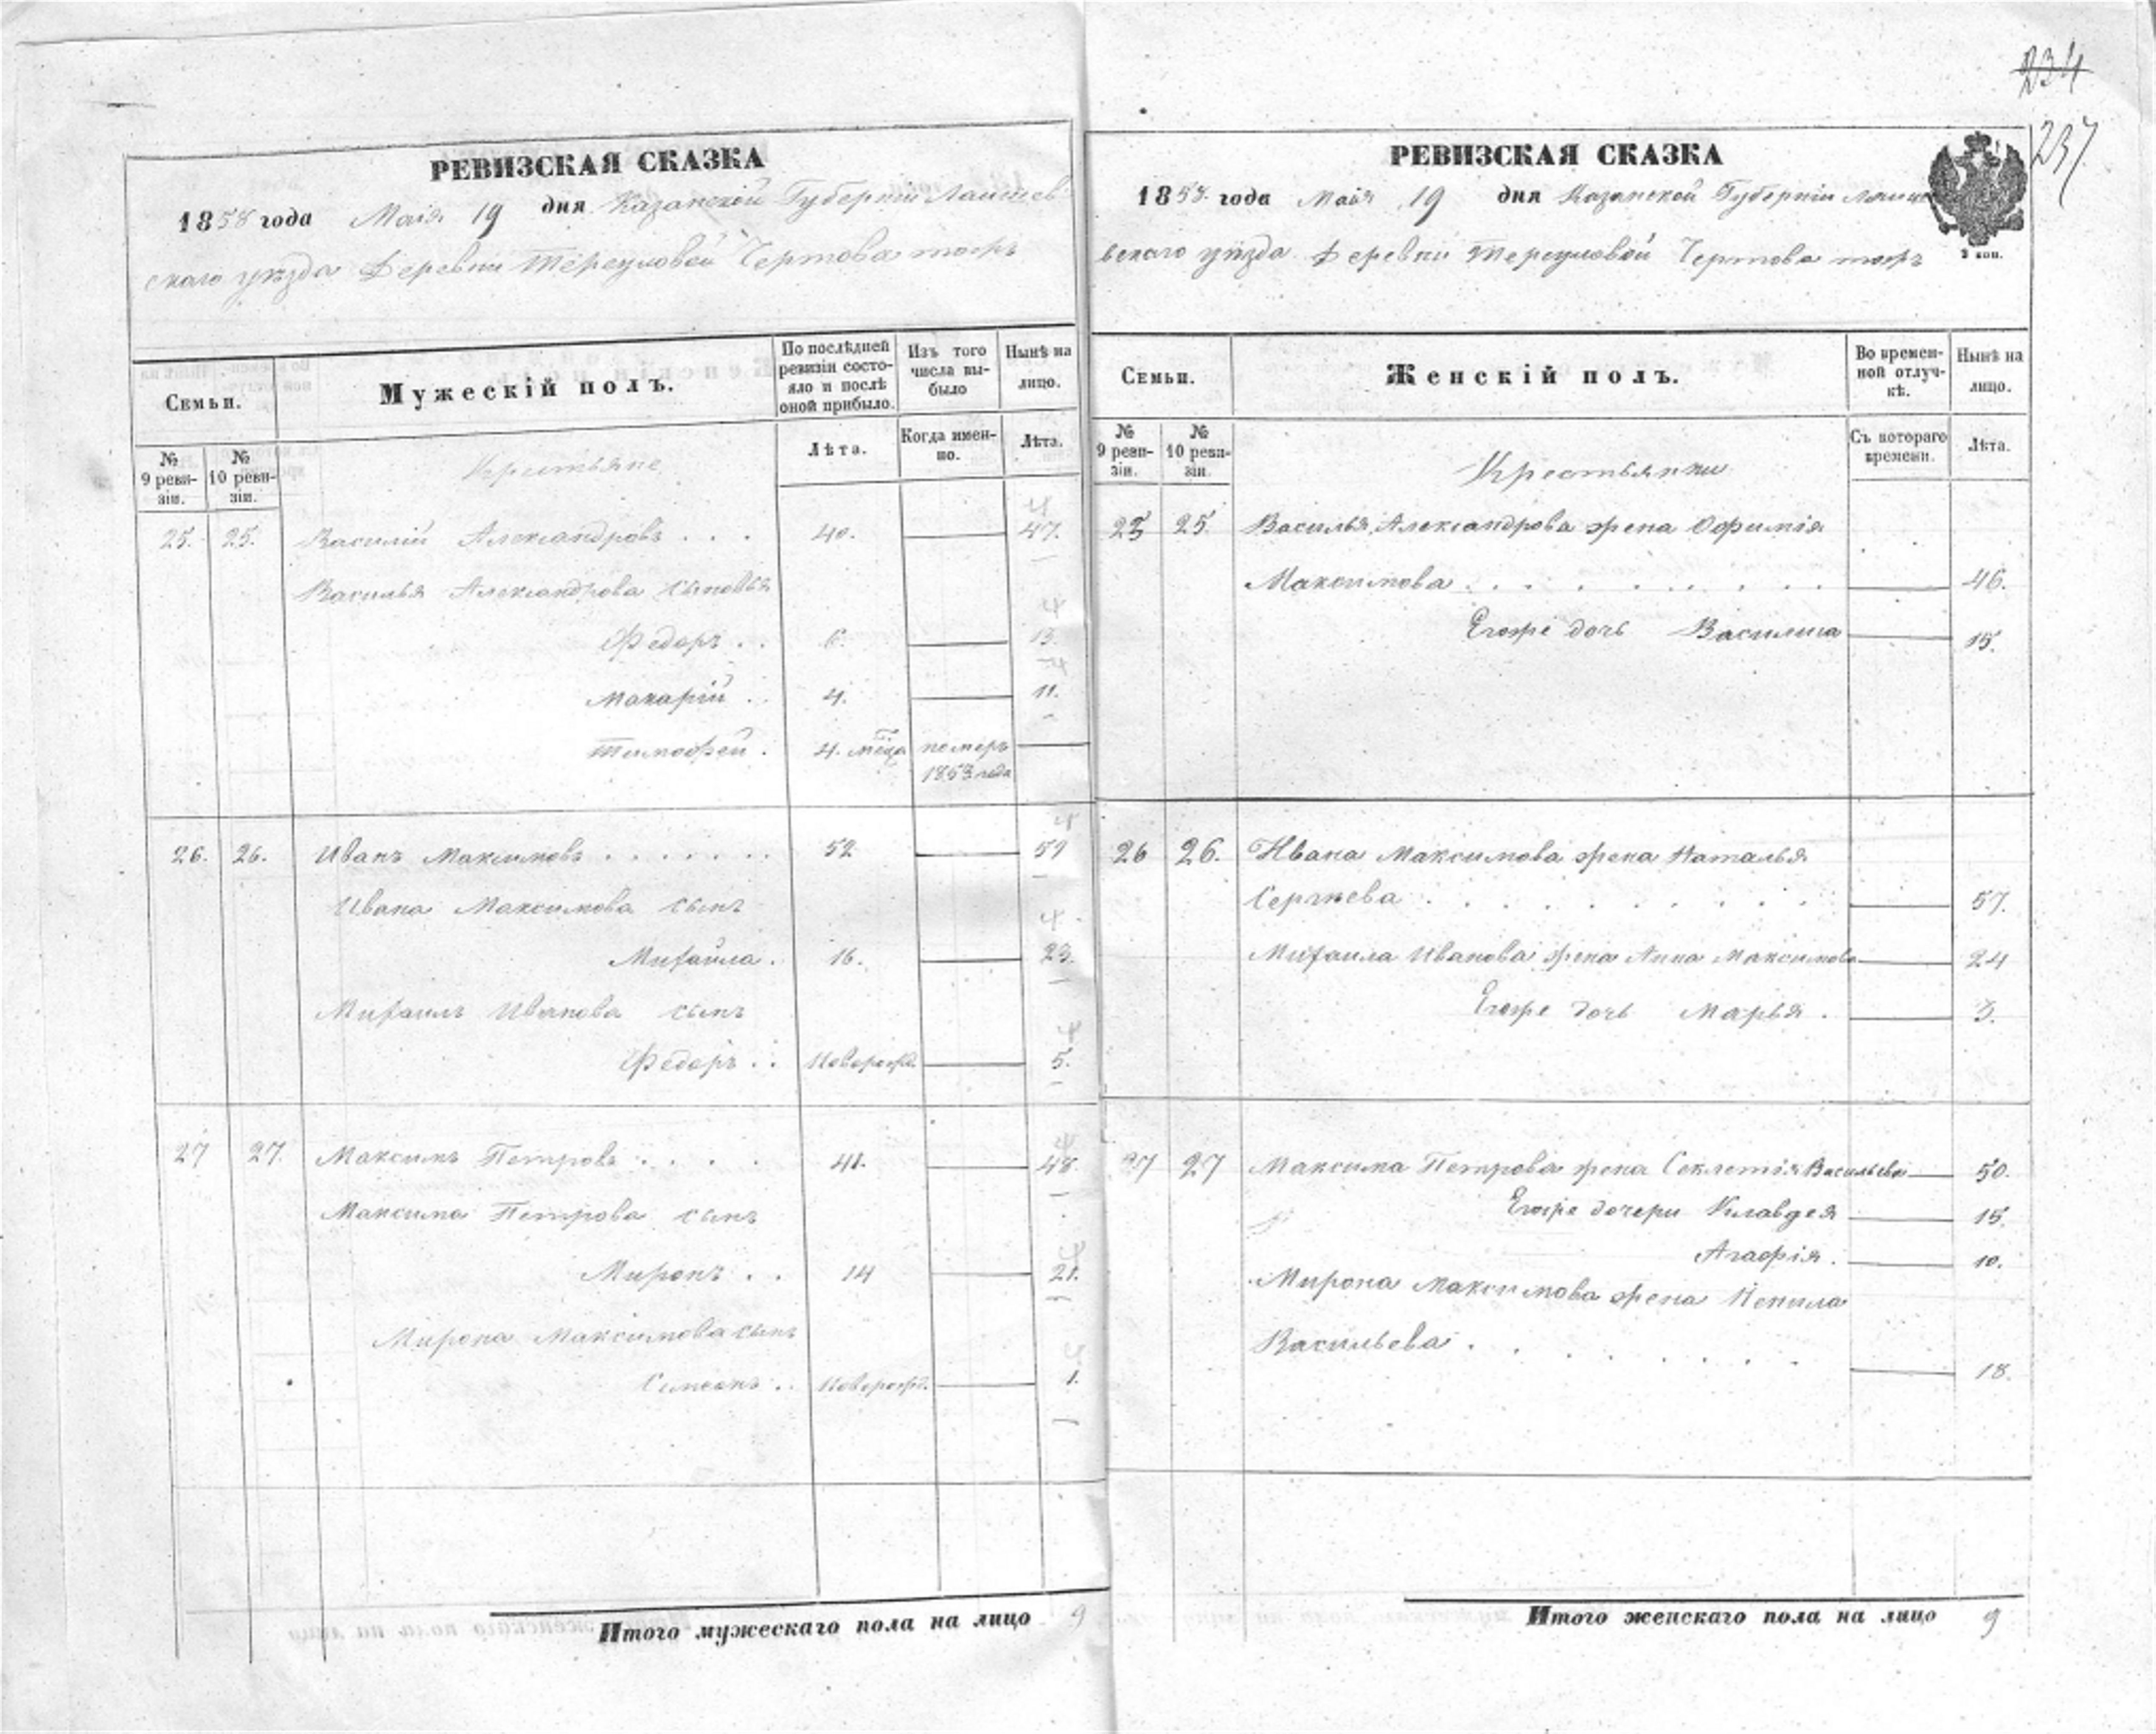 234
237
РЕВИЗСКАЯ СКАЗКА
1858 года Маія 19 дня Казанской Губерніи Лаишев-
скаго уѣзда Деревни Чертова тожъ
Семьи.
Мужескій полъ.
По послѣдней ревизіи состо-
яло и послѣ
оной прибыло.
Изъ того
числа вы-
было
Нынѣ на
лицо.
№
9 реви-
зіи.
№
10 реви-
зіи.
Крестьяне
Лѣта.
Когда имен-
но.
Лѣта.
25. 25. Василій Александровъ . . . 40. 47.
Василья Александрова сыновья
Федоръ . . 6. 13.
Макарій . . 4. 11.
Тимофей . 4. мѣца померъ
1853 года
26. 26. Иванъ Максимовъ . . . . . . . 52 59
Ивана Максимова сынъ
Михайла . 16. 23.
Михаилъ Иванова сынъ
Федоръ . . Новорожд. 5.
27 27. Максимъ Петровъ . . . . 41. 48.
Максима Петрова сынъ
Миронъ . . 14 21.
Мирона Максимова сынъ
Симеонъ . . Новорожд. 1.
Итого мужескаго пола на лицо 9
РЕВИЗСКАЯ СКАЗКА
1858. года Маія 19 дня Казанской Губерніи Лаише-
вскаго уѣзда Деревни Чертова тожъ
Семьи.
Женскій полъ.
Во времен-
ной отлуч-
кѣ.
Нынѣ на
лицо.
№
9 реви-
зіи.
№
10 реви-
зіи.
Крестьянки
Съ котораго
времени.
Лѣта.
25 25. Василья Александрова жена Офимія
Максимова . . . . . . . . 46.
Егожѣ дочь Василиса 15.
26 26. Ивана Максимова жена Наталья
Сергѣева . . . . . . . . . 57.
Михаила Иванова жена Анна Максимова 24
Егоже дочь Марья . 3.
27 27 Максима Петрова жена Секлетія Васильева 50.
Егоже дочери Клавдея 15.
Агафія . 10.
Мирона Максимова жена Ненила
Васильева . . . . . . . . 18.
Итого женскаго пола на лицо 9